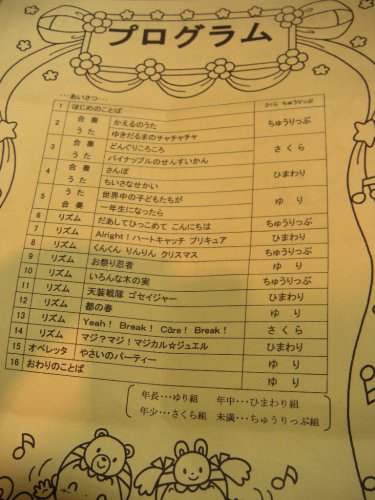 プログラム
…あいさつ…
1 はじめのことば さくら ちゅうりっぷ
2 合奏 かえるのうた ちゅうりっぷ
うた ゆきだるまのチャチャチャ
3 合奏 どんぐりころころ さくら
うた パイナップルのせんすいかん
4 合奏 さんぽ ひまわり
うた ちいさなせかい
5 合奏 世界中の子どもたちが ゆり
うた 一年生になったら
6 リズム だあしてひっこめて こんにちは ちゅうりっぷ
7 リズム Alright! ハートキャッチ プリキュア ひまわり
8 リズム くんくん りんりん クリスマス ちゅうりっぷ
9 リズム お祭り忍者 ゆり
10 リズム いろんな木の実 ちゅうりっぷ
11 リズム 天装戦隊 ゴセイジャー ひまわり
12 リズム 都の春 ゆり
13 リズム Yeah! Break! Care! Break! さくら
14 リズム マジ?マジ!マジカル☆ジュエル ひまわり
15 オペレッタ やさいのパーティー ゆり
16 おわりのことば ゆり
年長…ゆり組 年中…ひまわり組
年少…さくら組 未満…ちゅうりっぷ組